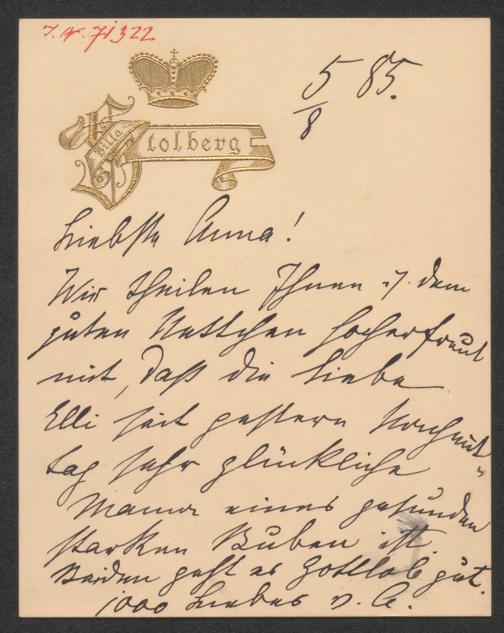 I. N. 71322
5/8 85.
Villa Stolberg
Liebste Anna!
Wir theilen Ihnen u. dem
guten Nettchen hocherfreut
mit, daß die liebe
Elli seit gestern Nachmit-
tag sehr glückliche
Mama eines gesunden
starken Buben ist.
Beiden geht es Gottlob gut.
1000 Liebes v. A.